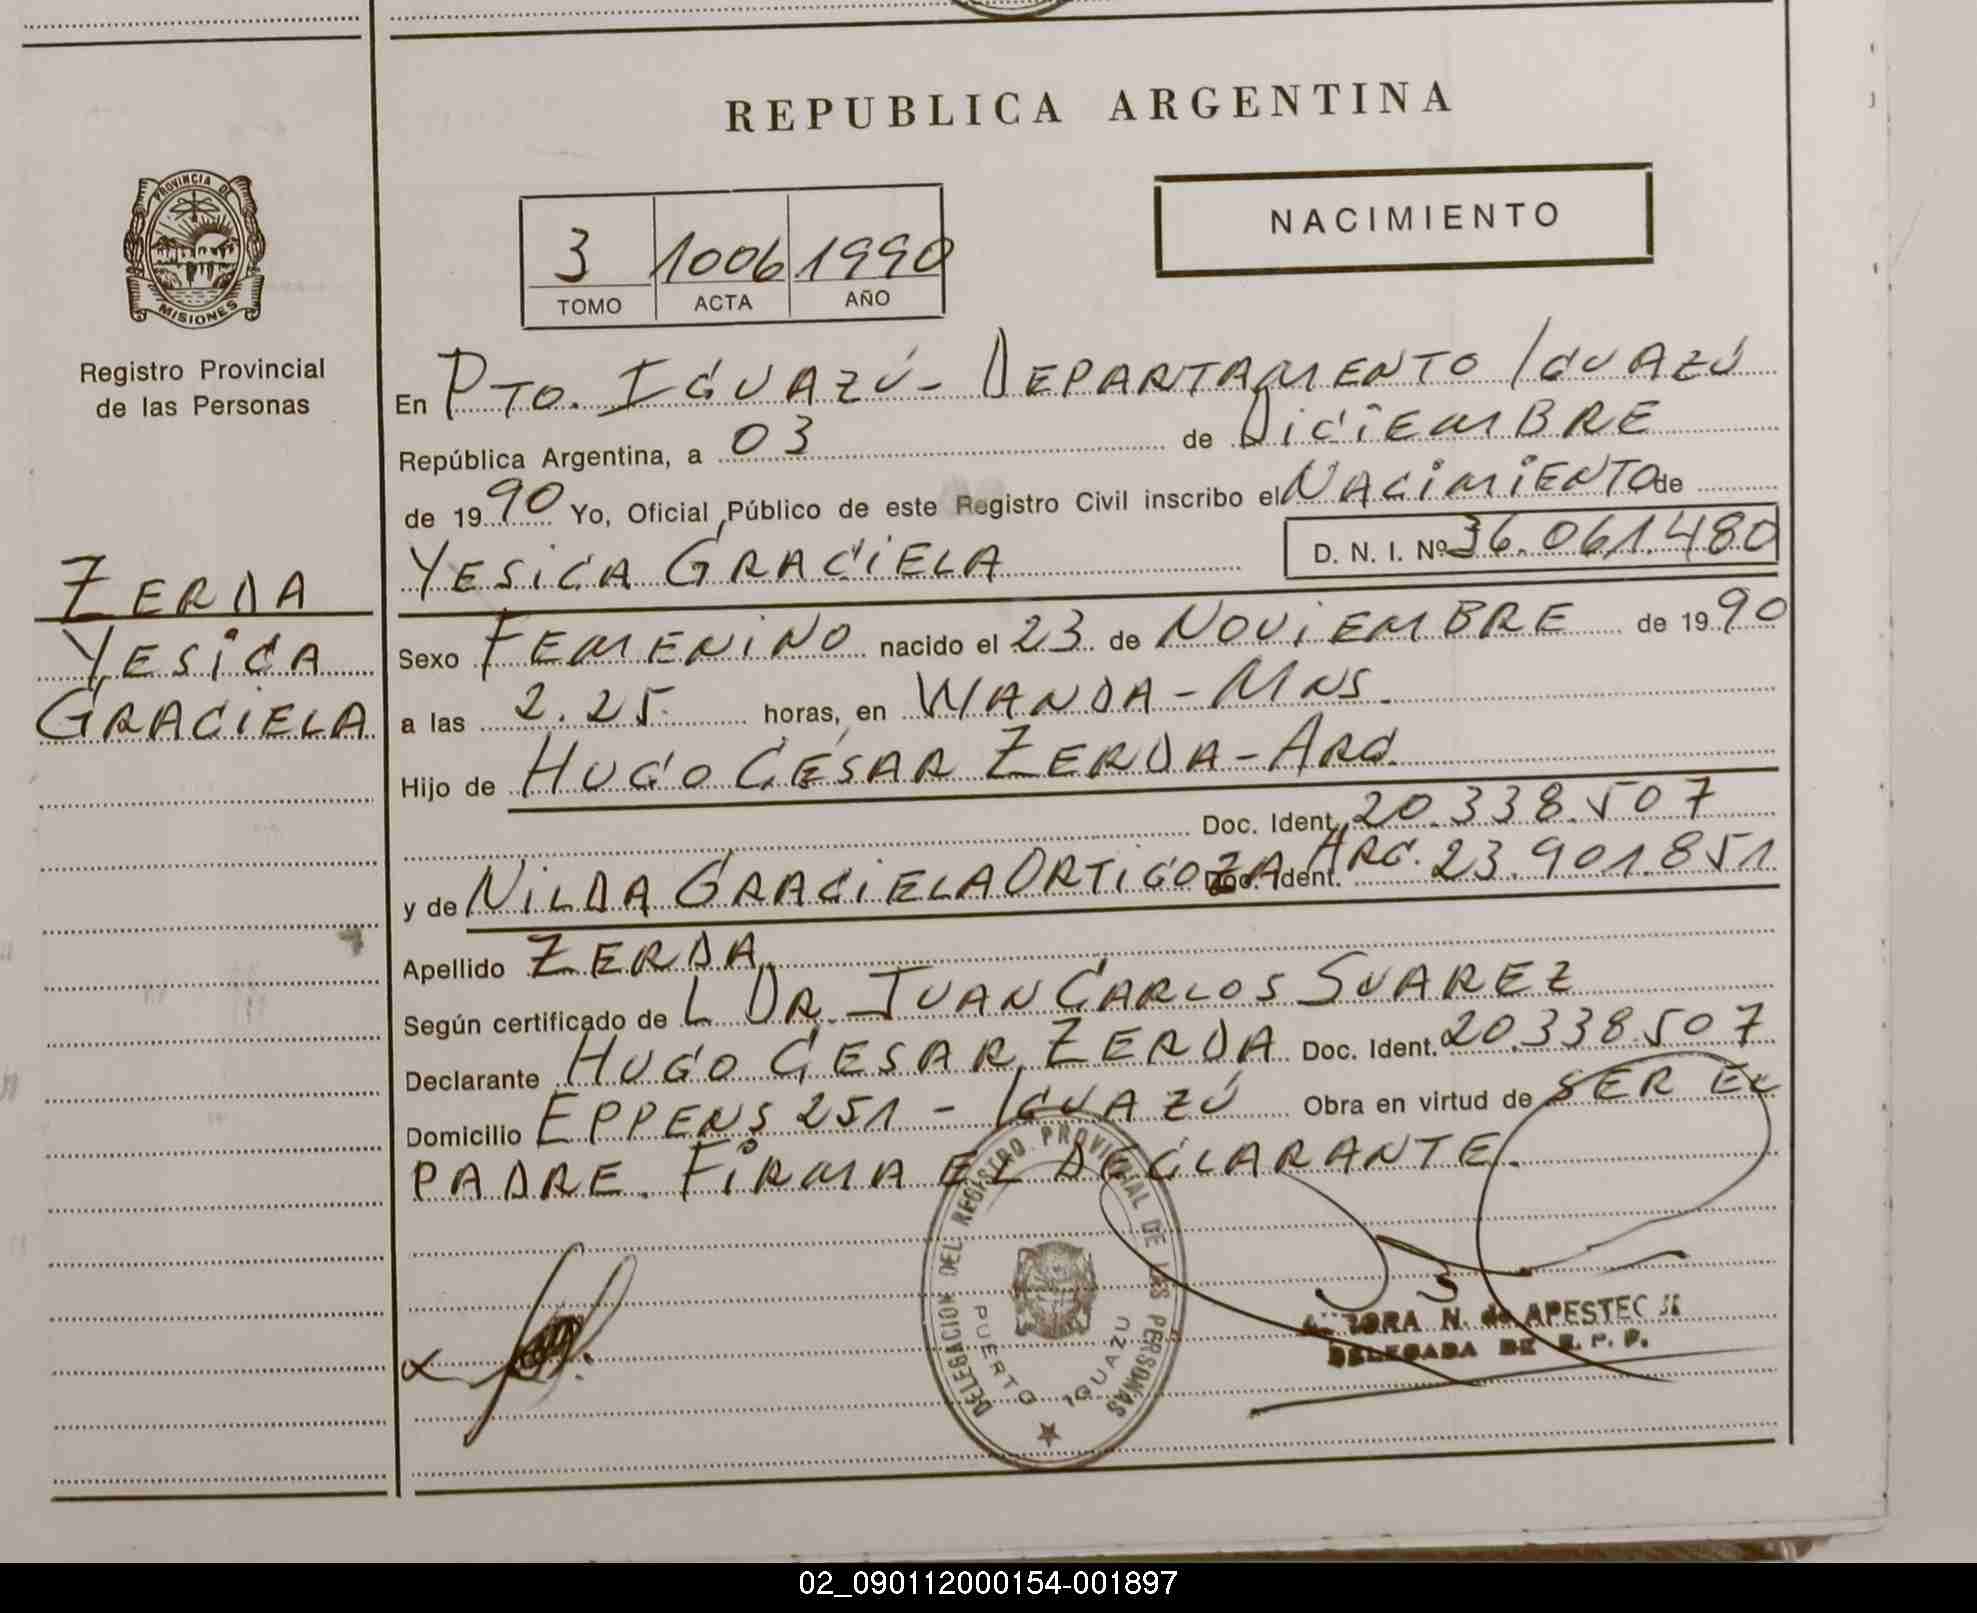 REPUBLICA ARGENTINA
PROVINCIA DE
MISIONES
Registro Provincial
de las Personas
NACIMIENTO
3 1006 1990
TOMO ACTA AÑO
En PTO. IGUAZÚ - DEPARTAMENTO IGUAZÚ
República Argentina, a 03 de DICIEMBRE
de 1990 Yo, Oficial Público de este Registro Civil inscribo el NACIMIENTO de
YESICA GRACIELA D. N. I. Nº 36.061.480
ZERDA
YESICA
GRACIELA
Sexo FEMENINO nacido el 23 de NOVIEMBRE de 1990
a las 2.25 horas, en WANDA - MNS.
Hijo de HUGO CÉSAR ZERDA - ARG.
Doc. Ident. 20.338.507
y de NILDA GRACIELA ORTIGOZA Doc. Ident. ARG. 23.901.851
Apellido ZERDA
Según certificado de L DR. JUAN CARLOS SUAREZ
Declarante HUGO CESAR ZERDA Doc. Ident. 20.338.507
Domicilio EPPENS 251 - IGUAZÚ Obra en virtud de SER EL
PADRE. FIRMA EL DECLARANTE.
DELEGACION DEL REGISTRO PROVINCIAL DE LAS PERSONAS
PUERTO IGUAZU
N. de
DELEGADA DE R. P. P.
02_090112000154-001897